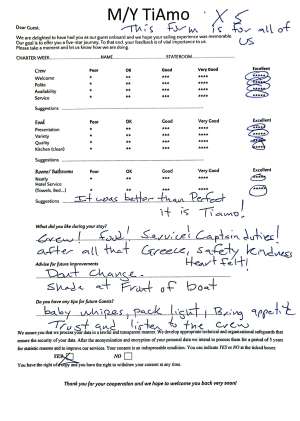 M/Y TiAmo
X 5
Dear Guest,
This form is for all of us
We are delighted to have had you as our guest onboard and we hope your sailing experience was memorable.
Our goal is to offer you a five-star journey. To that end, your feedback is of vital importance to us.
Please take a moment and let us know how we are doing.
CHARTER WEEK NAME STATEROOM
Crew Poor OK Good Very Good Excellent
Welcome * ** *** **** *****
Polite * ** *** **** *****
Availability * ** *** **** *****
Service * ** *** **** *****
Suggestions
Food Poor OK Good Very Good Excellent
Presentation * ** *** **** *****
Variety * ** *** **** *****
Quality * ** *** **** *****
Kitchen (clean) * ** *** **** *****
Suggestions
Rooms/ Bathrooms Poor OK Good Very Good Excellent
Ready * ** *** **** *****
Hotel Service
(Towels, Bed...) * ** *** **** *****
Suggestions It was better than Perfect
it is Tiamo!
What did you like during your stay?
Crew! food! Services! Captain duties!
after all that Greece, safety kindness
Heartfelt!
Advice for future improvements
Dont Change.
shade at Front of boat
Do you have any tips for future Guests?
baby whipes, pack light, Bring appetite
Trust and listen to the crew
We assure you that we process your data in a lawful and transparent manner. We develop appropriate technical and organizational safeguards that
ensure the security of your data. After the anonymization and encryption of your personal data we intend to process them for a period of 5 years
for statistic reasons and to improve our services. Your consent is an indispensable condition. You can indicate YES or NO in the linked boxes:
YES NO
You have the right of a copy and you have the right to withdraw your consent at any time.
Thank you for your cooperation and we hope to welcome you back very soon!